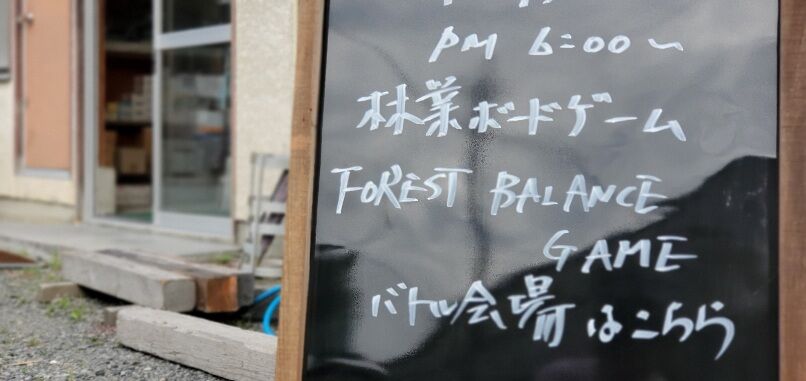 PM 6:00〜
林業ボードゲーム
FOREST BALANCE
GAME
バトル会場はこちら